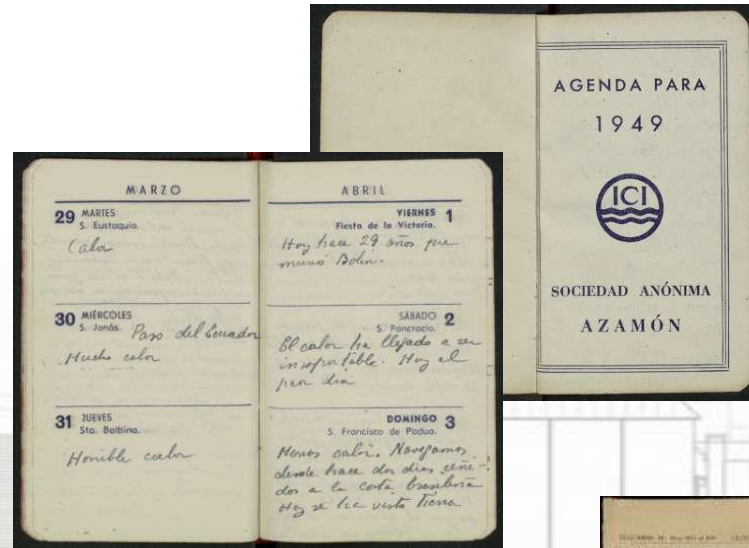 AGENDA PARA
1949
ICI
SOCIEDAD ANÓNIMA
AZAMÓN
MARZO
29 MARTES
S. Eustaquio.
Calor
30 MIÉRCOLES
S. Jonás. Paso del Ecuador
Mucho calor
31 JUEVES
Sta. Balbina.
Horrible calor
ABRIL
VIERNES 1
Fiesta de la Victoria.
Hoy hace 29 años que
murió Bolin.
SÁBADO 2
S. Pancracio.
El calor ha llegado a ser
insoportable. Hoy el
peor dia
DOMINGO 3
S. Francisco de Padua.
Menos calor. Navegamos
desde hace dos dias ceñi-
dos a la costa brasileña
Hoy se ha visto Tierra